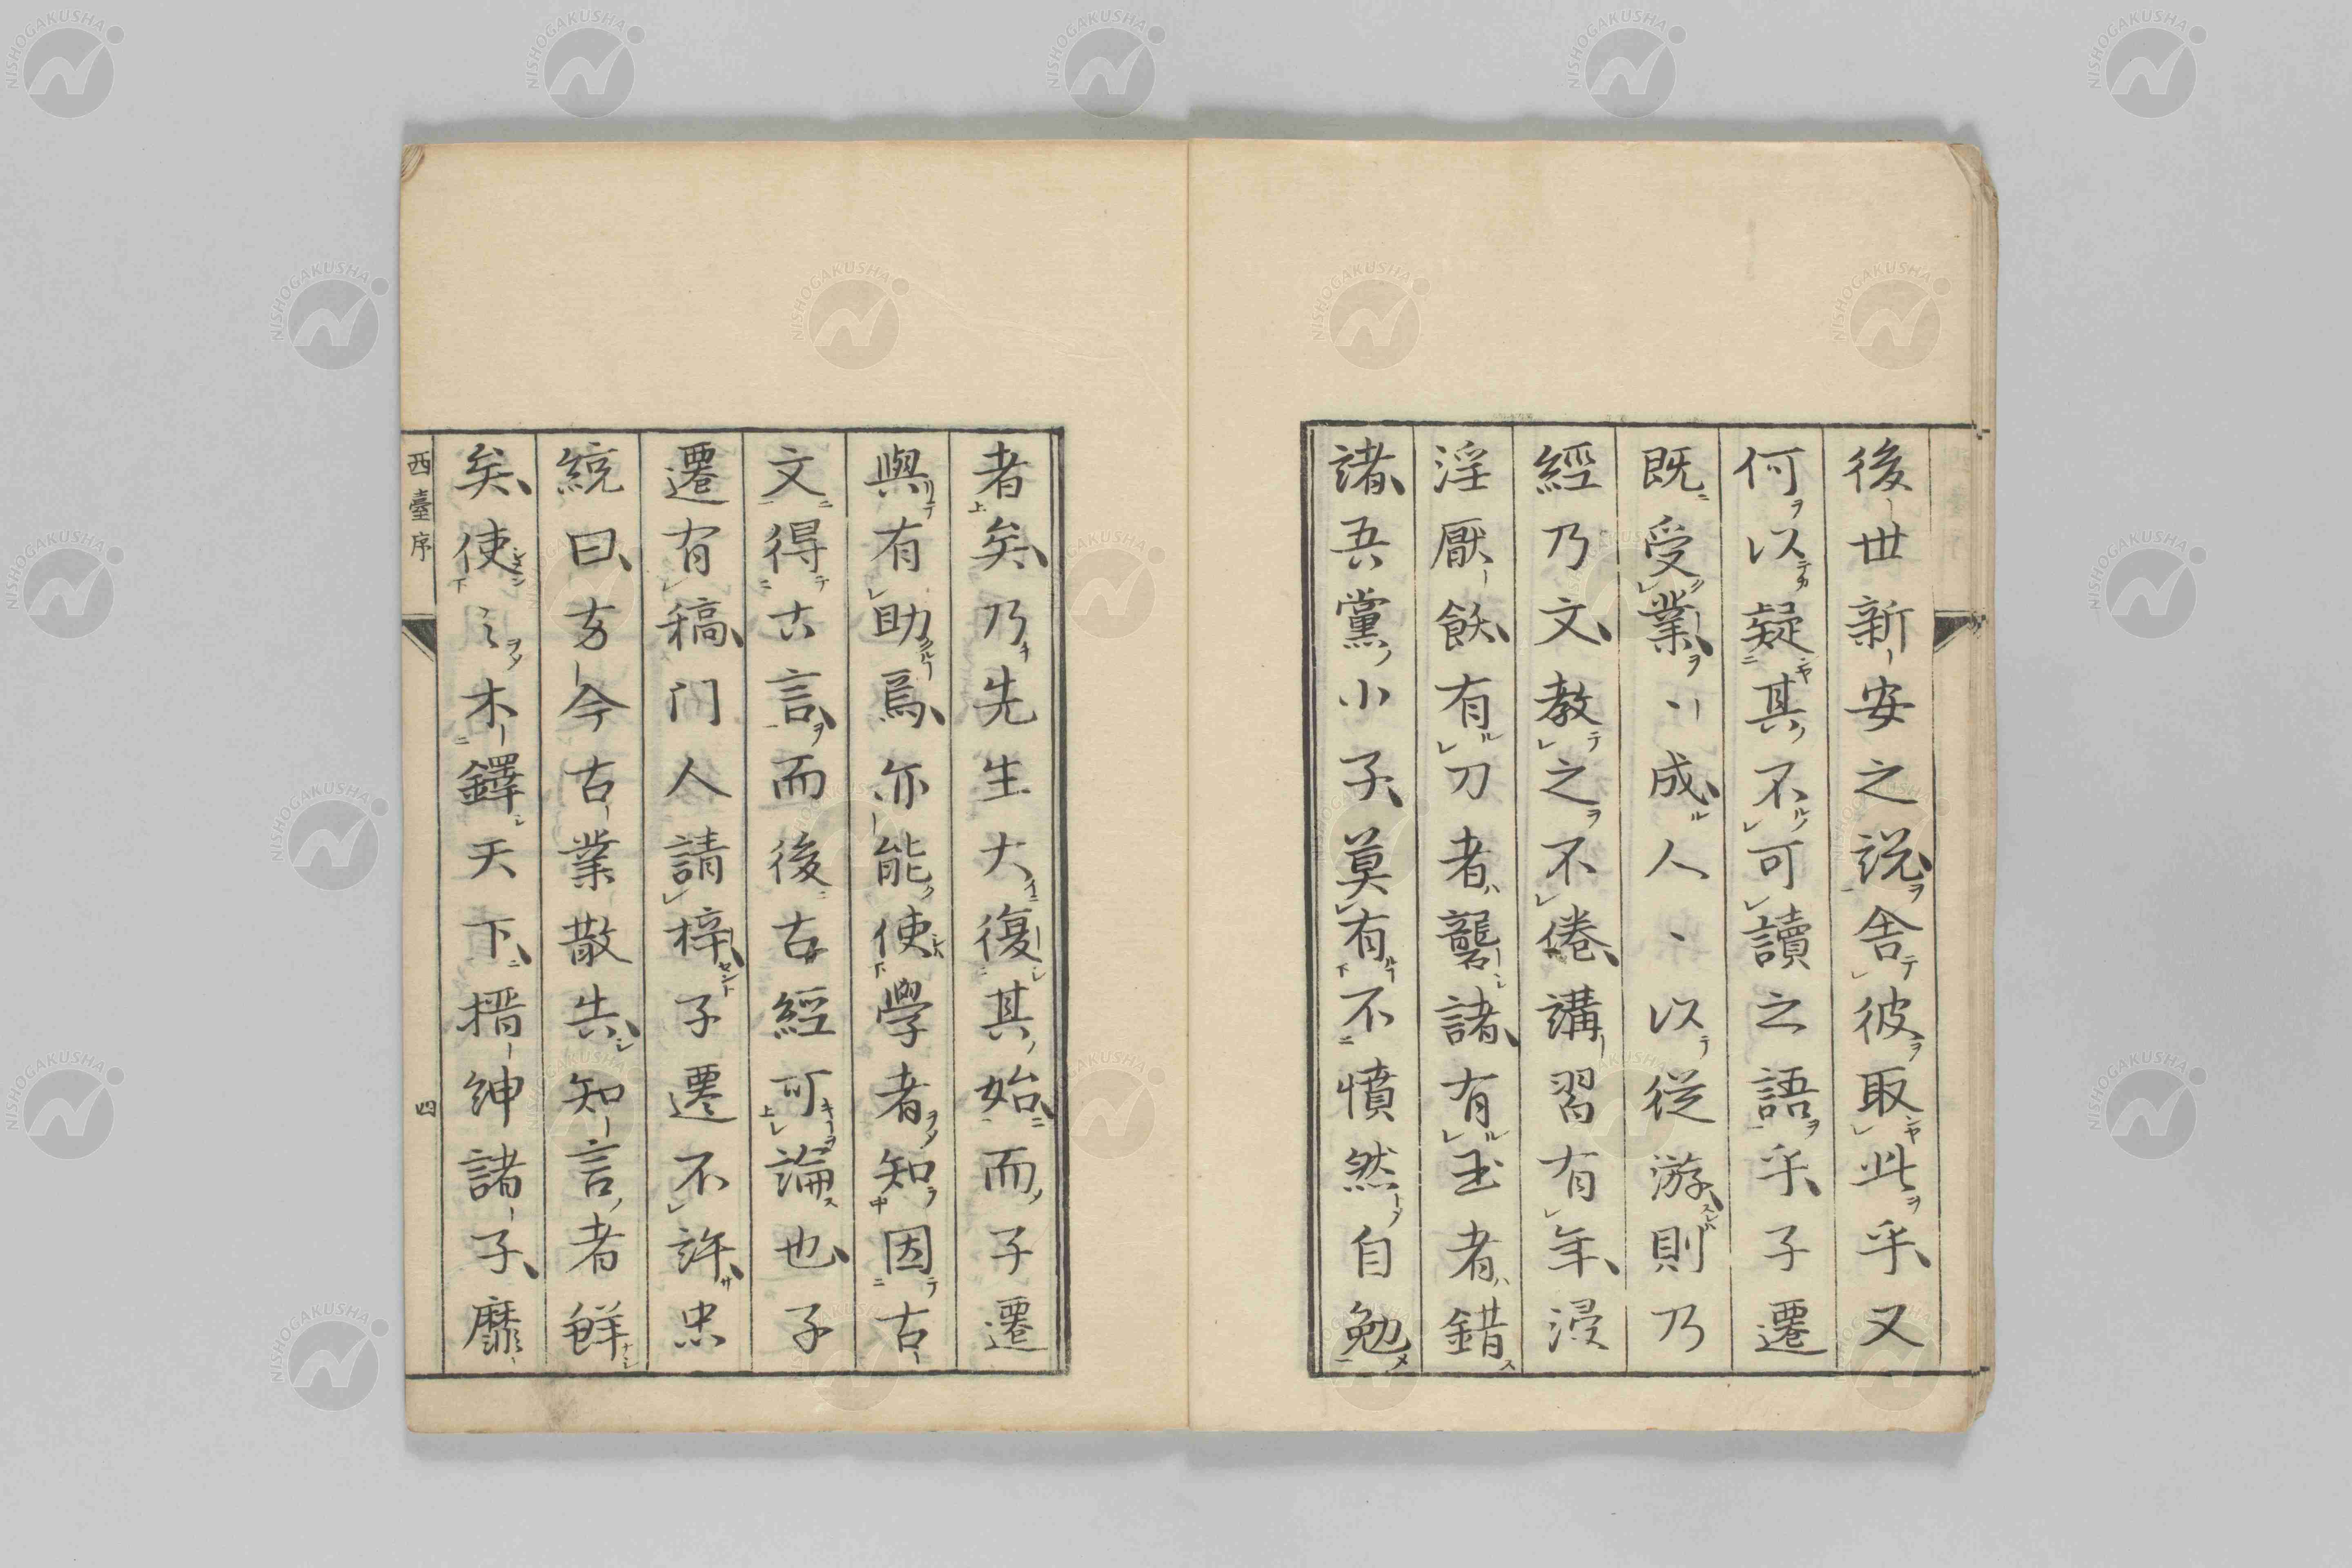 後世新安之説舎彼取此乎又
何以疑其不可讀之語乎子遷
既受業〻成人〻以從游則乃
經乃文教之不倦講習有年浸
淫厭飫有刀者礱諸有玉者錯
諸吾黨小子莫有不憤然自勉
者矣乃先生大復其始而子遷
與有助焉亦能使學者知因古
文得古言而後古經可論也子
遷有稿門人請梓子遷不許忠
統曰方今古業散告知言者鮮
矣使之木鐸天下搢紳諸子靡
西臺序
四
NISHOGAKUSHA